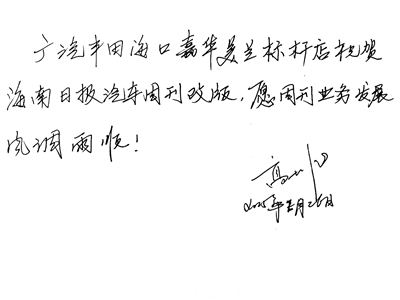 广汽丰田海口嘉华美兰标杆店祝贺
海南日报汽车周刊改版，愿周刊业务发展
风调雨顺！
高
2005年5月26日